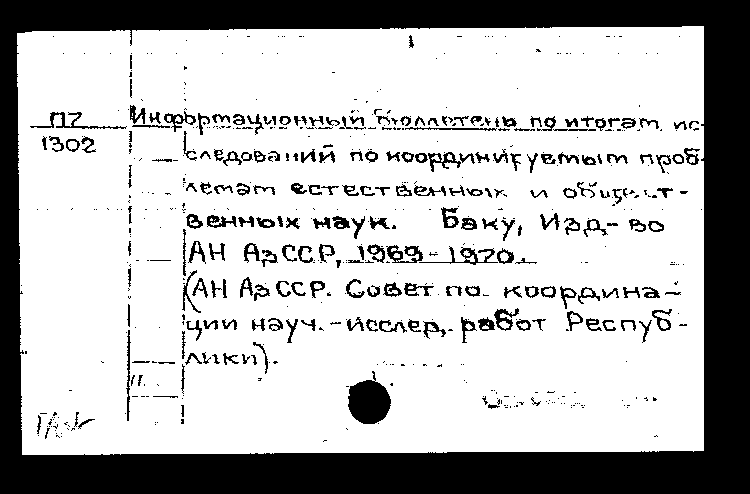 П7
1302
Информационный бюллетень по итогам ис-
следований по координируемым проб-
лемам естественных и общест-
венных наук. Баку, Изд-во
АН АзССР, 1969-1970.
(АН АзССР. Совет по координа-
ции науч.-исслед. работ Респуб-
лики).